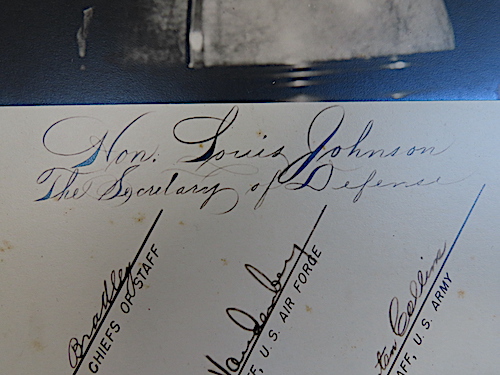 Hon. Louis Johnson
The Secretary of Defense
Bradley
CHIEFS OF STAFF
Vandenberg
FF, U.S. AIR FORCE
ton Collins
AFF, U.S. ARMY